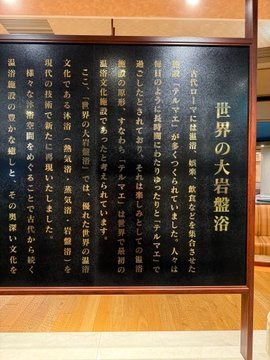 世界の大岩盤浴
古代ローマには温浴、娯楽、飲食などを集合させた
施設「テルマエ」が多くつくられていました。人々は
毎日のように長時間にわたりゆったりと「テルマエ」で
過ごしたとされており、それは楽しみとしての温浴
施設の原形、すなわち「テルマエ」は世界で最初の
温浴文化施設であったと考えられています。
ここ、「世界の大岩盤浴」では、優れた世界の温浴
文化である沐浴（熱気浴、蒸気浴、岩盤浴）を
現代の技術で新たに再現いたしました。
様々な沐浴空間をめぐることで古代から続く
温浴施設の豊かな癒しと、その奥深い文化を